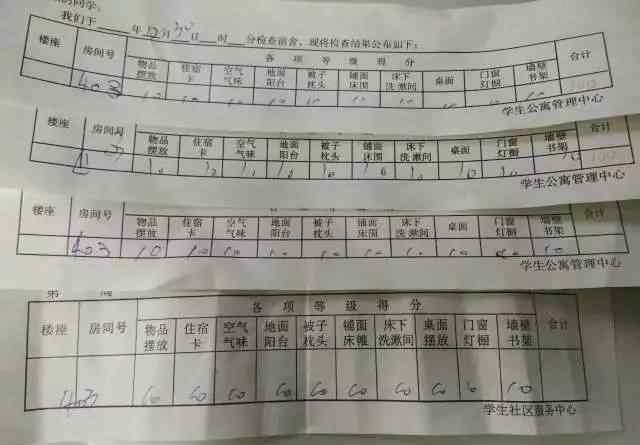 同学:
我们于 年12月30日 时 分检查宿舍,现将检查结果公布如下:
楼座 房间号 各项等级得分 合计
物品摆放 住宿卡 空气气味 地面阳台 被子枕头 铺面床围 床下洗漱间 桌面 门窗灯橱 墙壁书架
403 10 10 10 10 10 10 10 10 10 10 100
学生公寓管理中心
楼座 房间号 物品摆放 住宿卡 空气气味 地面阳台 被子枕头 铺面床围 床下洗漱间 桌面 门窗灯橱 墙壁书架 合计
10 10 10 10 10 10 10 10 10 10 100
学生公寓管理中心
楼座 房间号 物品摆放 住宿卡 空气气味 地面阳台 被子枕头 铺面床围 床下洗漱间 桌面 门窗灯橱 墙壁书架 合计
403 10 10 10 10 10 10 10 10 10 10
学生公寓管理中心
第 周
楼座 房间号 各项等级得分 合计
物品摆放 住宿卡 空气气味 地面阳台 被子枕头 铺面床帷 床下洗漱间 桌面摆放 门窗灯橱 墙壁书架
403 10 10 10 10 10 10 10 10 10 10
学生社区服务中心